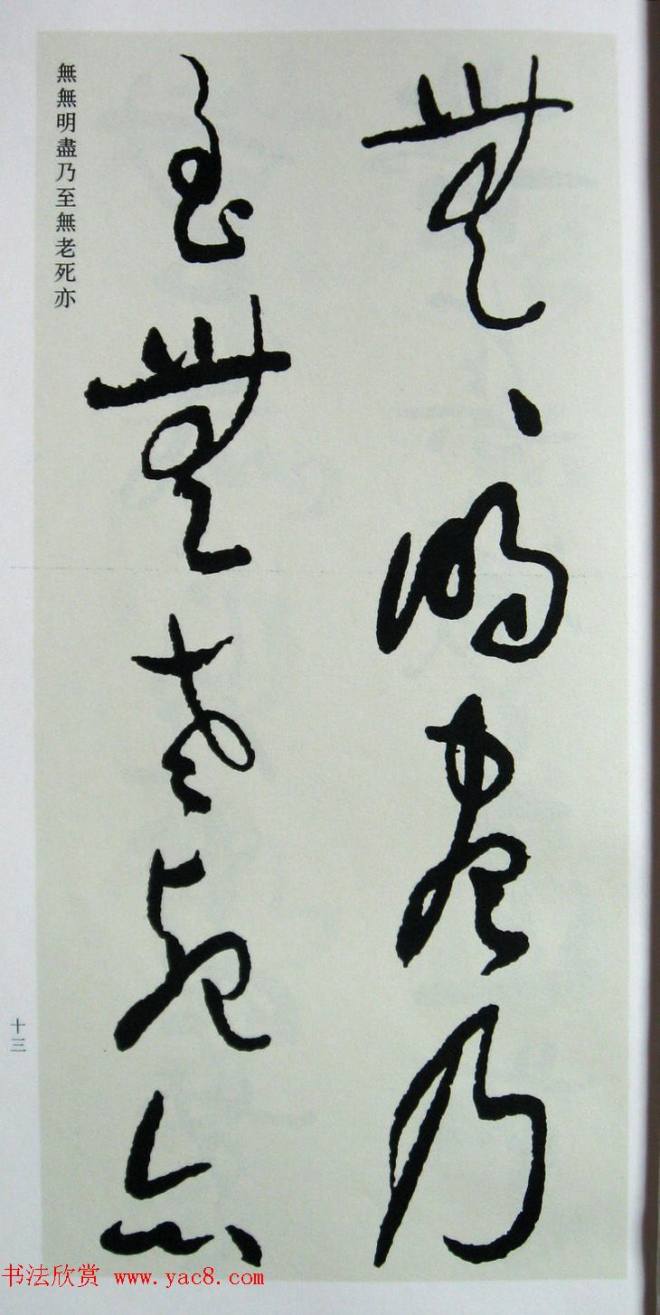 無〻明盡乃
至無老死亦
無無明盡乃至無老死亦
十三
书法欣赏 www.yac8.com